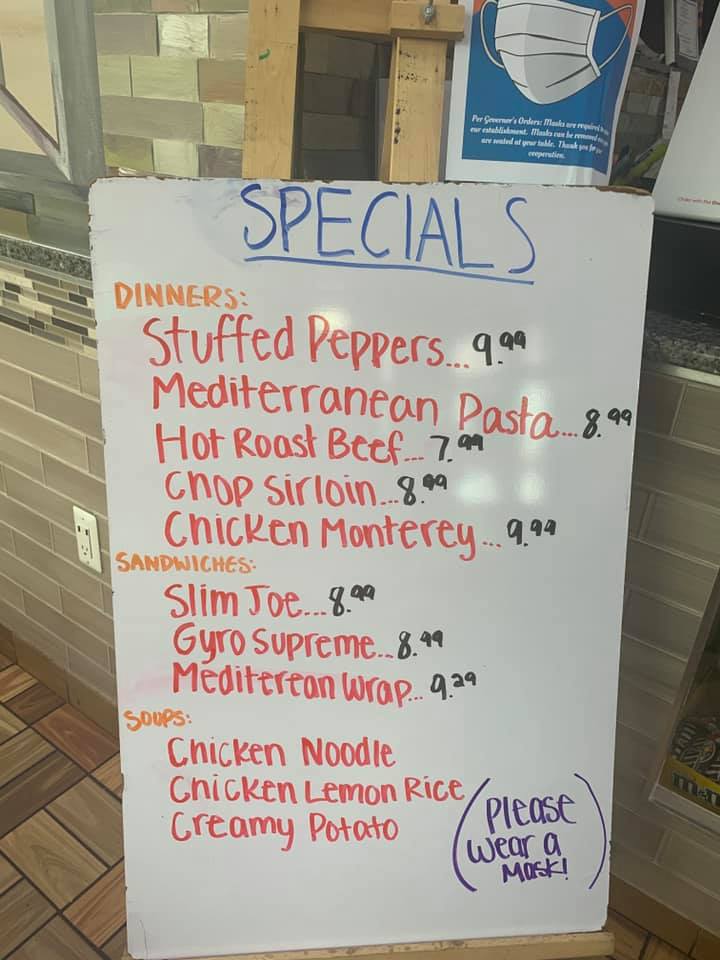 Per Governor's Orders: Masks are required
our establishment. Masks can be removed
are seated at your table. Thank you for
cooperation.
SPECIALS
DINNERS:
Stuffed Peppers...9.99
Mediterranean Pasta...8.99
Hot Roast Beef...7.99
Chop Sirloin...8.99
Chicken Monterey...9.99
SANDWICHES:
Slim Joe...8.99
Gyro Supreme...8.99
Mediterean Wrap...9.29
SOUPS:
Chicken Noodle
Chicken Lemon Rice
Creamy Potato
(Please
wear a
Mask!)